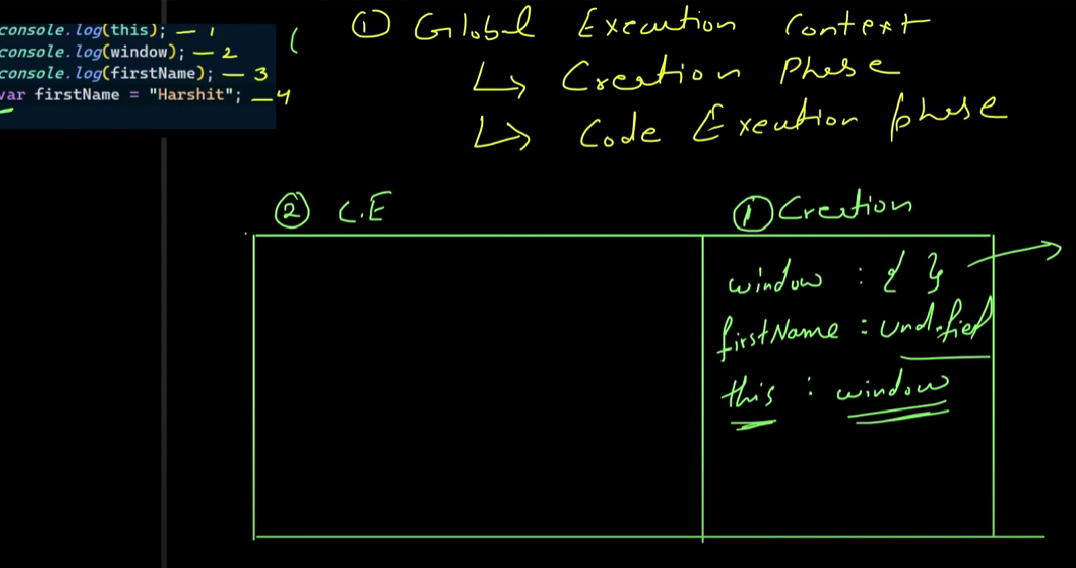 console.log(this); — 1
console.log(window); — 2
console.log(firstName); — 3
var firstName = "Harshit"; — 4
(
① Global Execution Context
↳ Creation Phase
↳ Code Execution phase
② C.E
① Creation
window : { } →
firstName : undefied
this : window